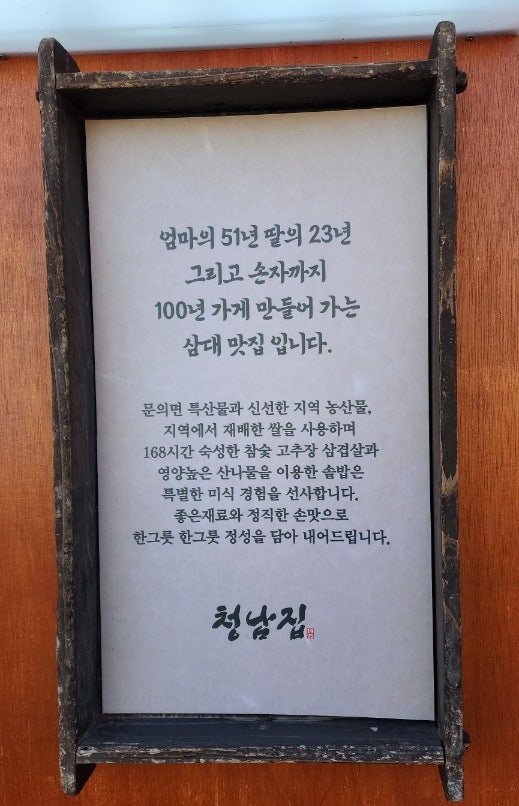 엄마의 51년 딸의 23년
그리고 손자까지
100년 가게 만들어 가는
삼대 맛집 입니다.
문의면 특산물과 신선한 지역 농산물,
지역에서 재배한 쌀을 사용하며
168시간 숙성한 참숯 고추장 삼겹살과
영양높은 산나물을 이용한 솥밥은
특별한 미식 경험을 선사합니다.
좋은재료와 정직한 손맛으로
한그릇 한그릇 정성을 담아 내어드립니다.
청남집